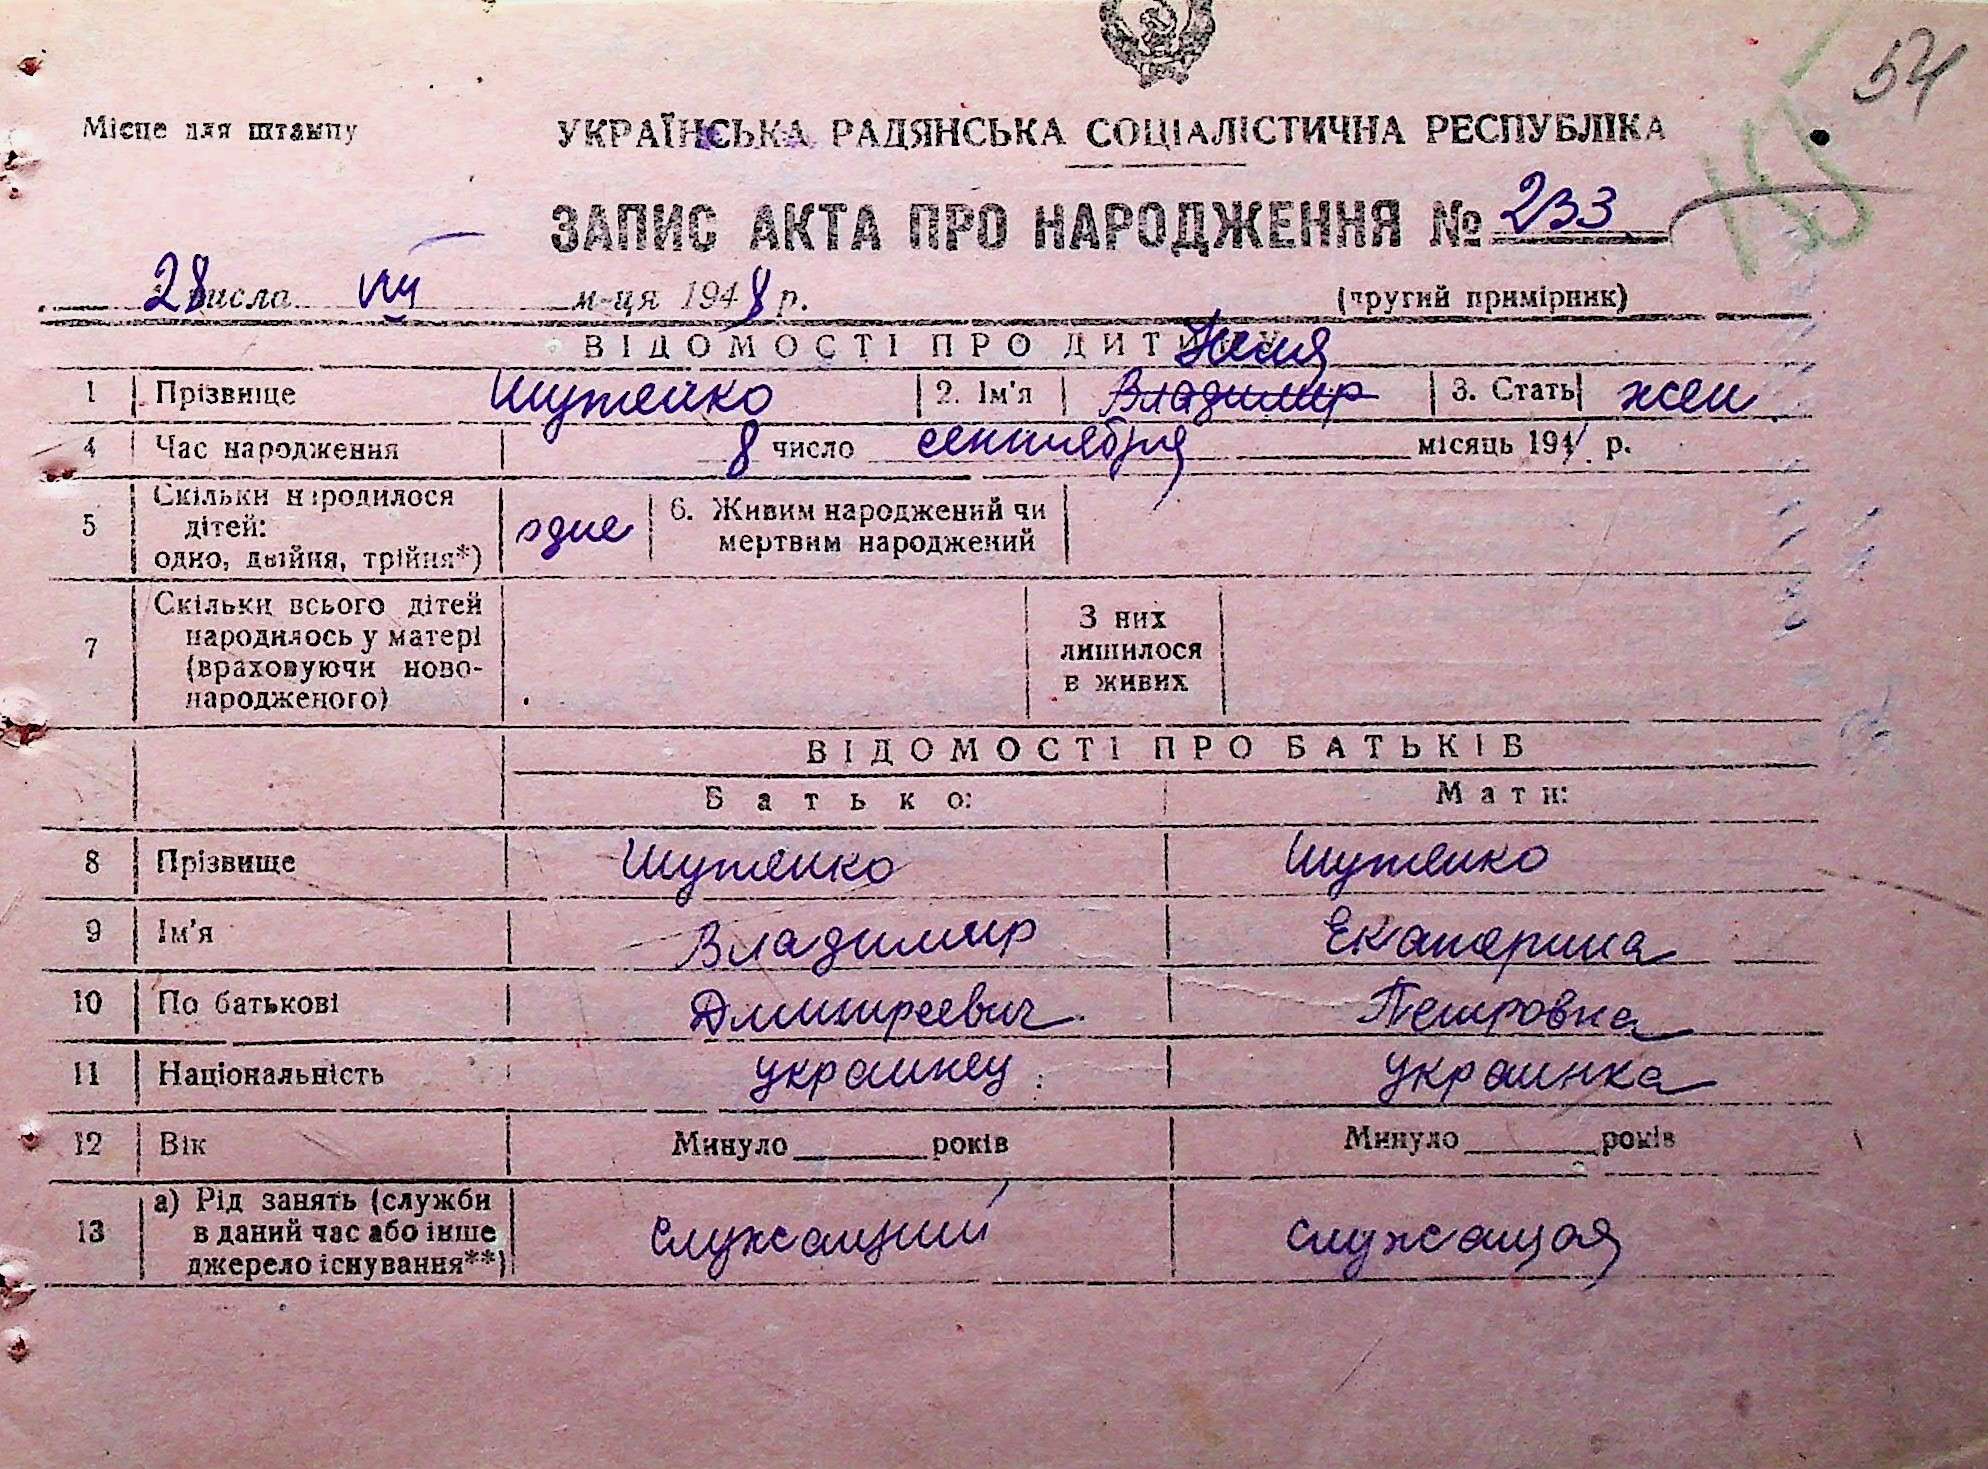 54
Місце для штампу
УКРАЇНСЬКА РАДЯНСЬКА СОЦІАЛІСТИЧНА РЕСПУБЛІКА
ЗАПИС АКТА ПРО НАРОДЖЕННЯ № 233
28 числа VIII м-ця 1948 р. (другий примірник)
ВІДОМОСТІ ПРО ДИТИНУ
1 Прізвище Шутенко 2. Ім'я Владимир 3. Стать жен
4 Час народження 8 число сентября місяць 1941 р.
5 Скільки народилося дітей: одно, двійня, трійня*) одне 6. Живим народжений чи мертвим народжений
7 Скільки всього дітей народилось у матері (враховуючи ново-народженого) З них лишилося в живих
ВІДОМОСТІ ПРО БАТЬКІВ
Батько: Мати:
8 Прізвище Шутенко Шутенко
9 Ім'я Владимир Екатерина
10 По батькові Дмитреевич Петровна
11 Національність украинец украинка
12 Вік Минуло років Минуло років
13 а) Рід занять (служби в даний час або інше джерело існування**) служащий служащая